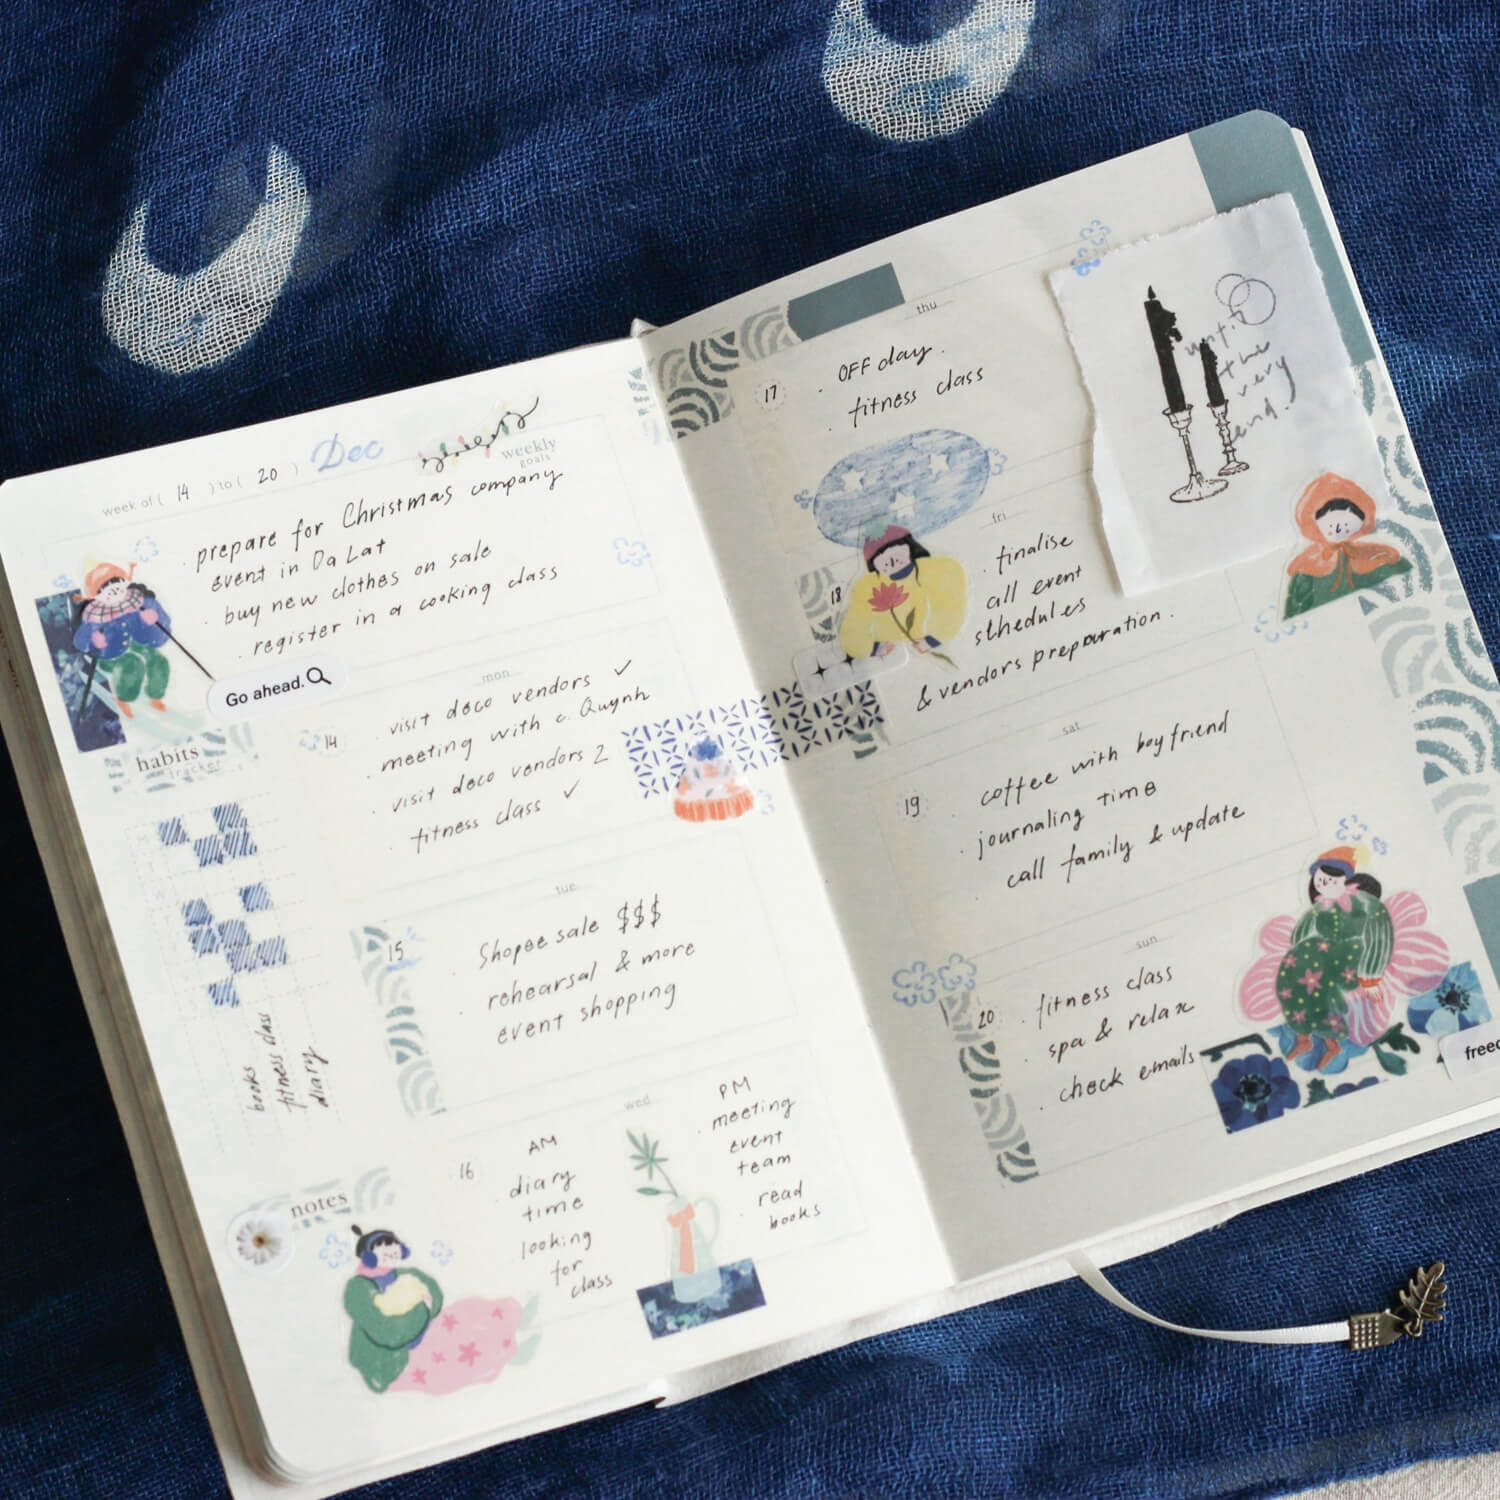 week of ( 14 ) to ( 20 ) Dec
weekly
goals
. prepare for Christmas company
event in Da Lat
. buy new clothes on sale
. register in a cooking class
Go ahead.
habits
tracker
books
fitness class
diary
mon
14
. visit deco vendors ✓
. meeting with c. Quynh
. visit deco vendors 2
. fitness class ✓
tue
15
. Shopee sale $$$
. rehearsal & more
event shopping
wed
16
AM
. diary
time
. looking
for
class
PM
. meeting
event
team
. read
books
notes
thu
17
. OFF day.
. fitness class
until
the
very
end.
fri
18
. finalise
all event
schedules
& vendors preparation.
sat
19
. coffee with boyfriend
. journaling time
. call family & update
sun
20
. fitness class
. spa & relax
. check emails